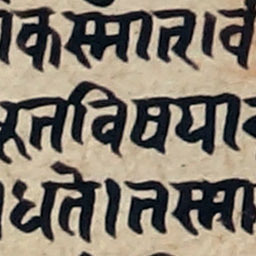 कस्मात्।व
रूतविषया
धते।तस्मा